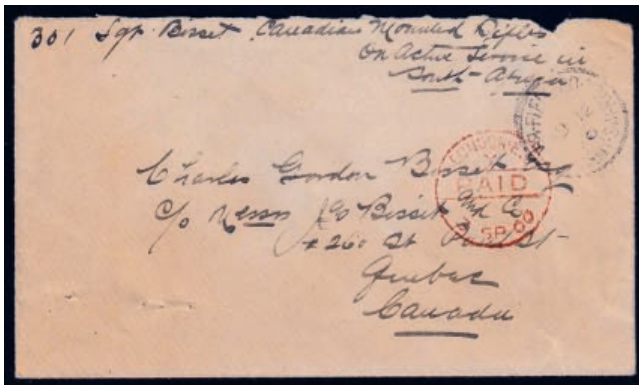 301 Sgt Bisset Canadian Mounted Rifles
On Active Service in
South Africa
Charles Gordon Bisset Esq
c/o Messrs Bisset & Co
St Paul St
Quebec
Canada
LONDON
PAID
SP 00